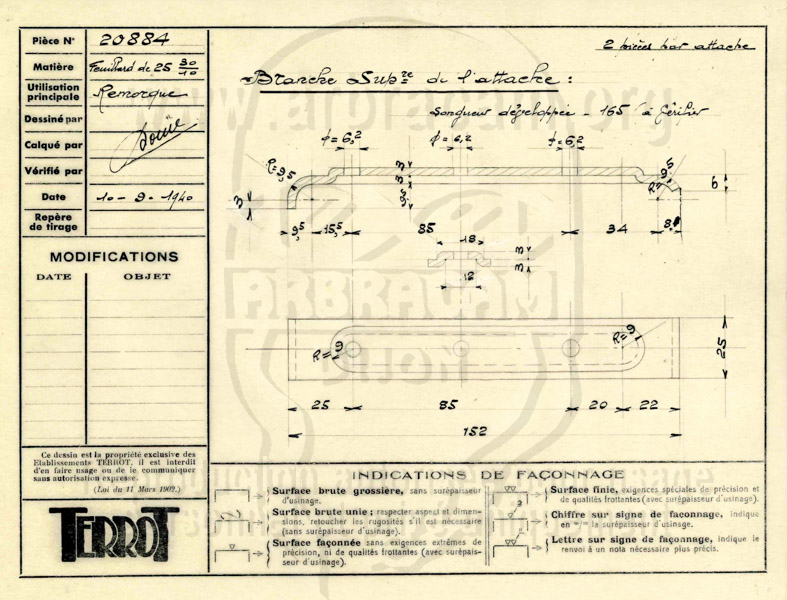 Pièce N° 20884
Matière Feuillard de 25 30/10
Utilisation principale Remorque
Dessiné par
Calqué par
Vérifié par
Date 10-9-1940
Repère de tirage
MODIFICATIONS
DATE OBJET
Ce dessin est la propriété exclusive des
Etablissements TERROT. il est interdit
d'en faire usage ou de le communiquer
sans autorisation expresse.
(Loi du 11 Mars 1902.)
TERROT
2 pièces par attache
Branche Supre de l'attache :
Longueur développée - 165 à vérifier
ϕ=6,2 ϕ=6,2 ϕ=6,2
R=9,5 3 3 9,5 3 R=9,5 6
9,5 15,5 85 34 8,
18 3
12 3
R=9 R=9 25
25 85 20 22
152
www.arbracam.org
ARBRACAM
DIJON
INDICATIONS DE FAÇONNAGE
Surface brute grossière, sans surépaisseur
d'usinage.
Surface brute unie ; respecter aspect et dimen-
sions, retoucher les rugosités s'il est nécessaire
(sans surépaisseur d'usinage).
Surface façonnée sans exigences extrêmes de
précision, ni de qualités frottantes (avec surépais-
seur d'usinage).
Surface finie, exigences spéciales de précision et
de qualités frottantes (avec surépaisseur d'usinage).
Chiffre sur signe de façonnage, indique
en m/m la surépaisseur d'usinage.
Lettre sur signe de façonnage, indique le
renvoi à un nota nécessaire plus précis.